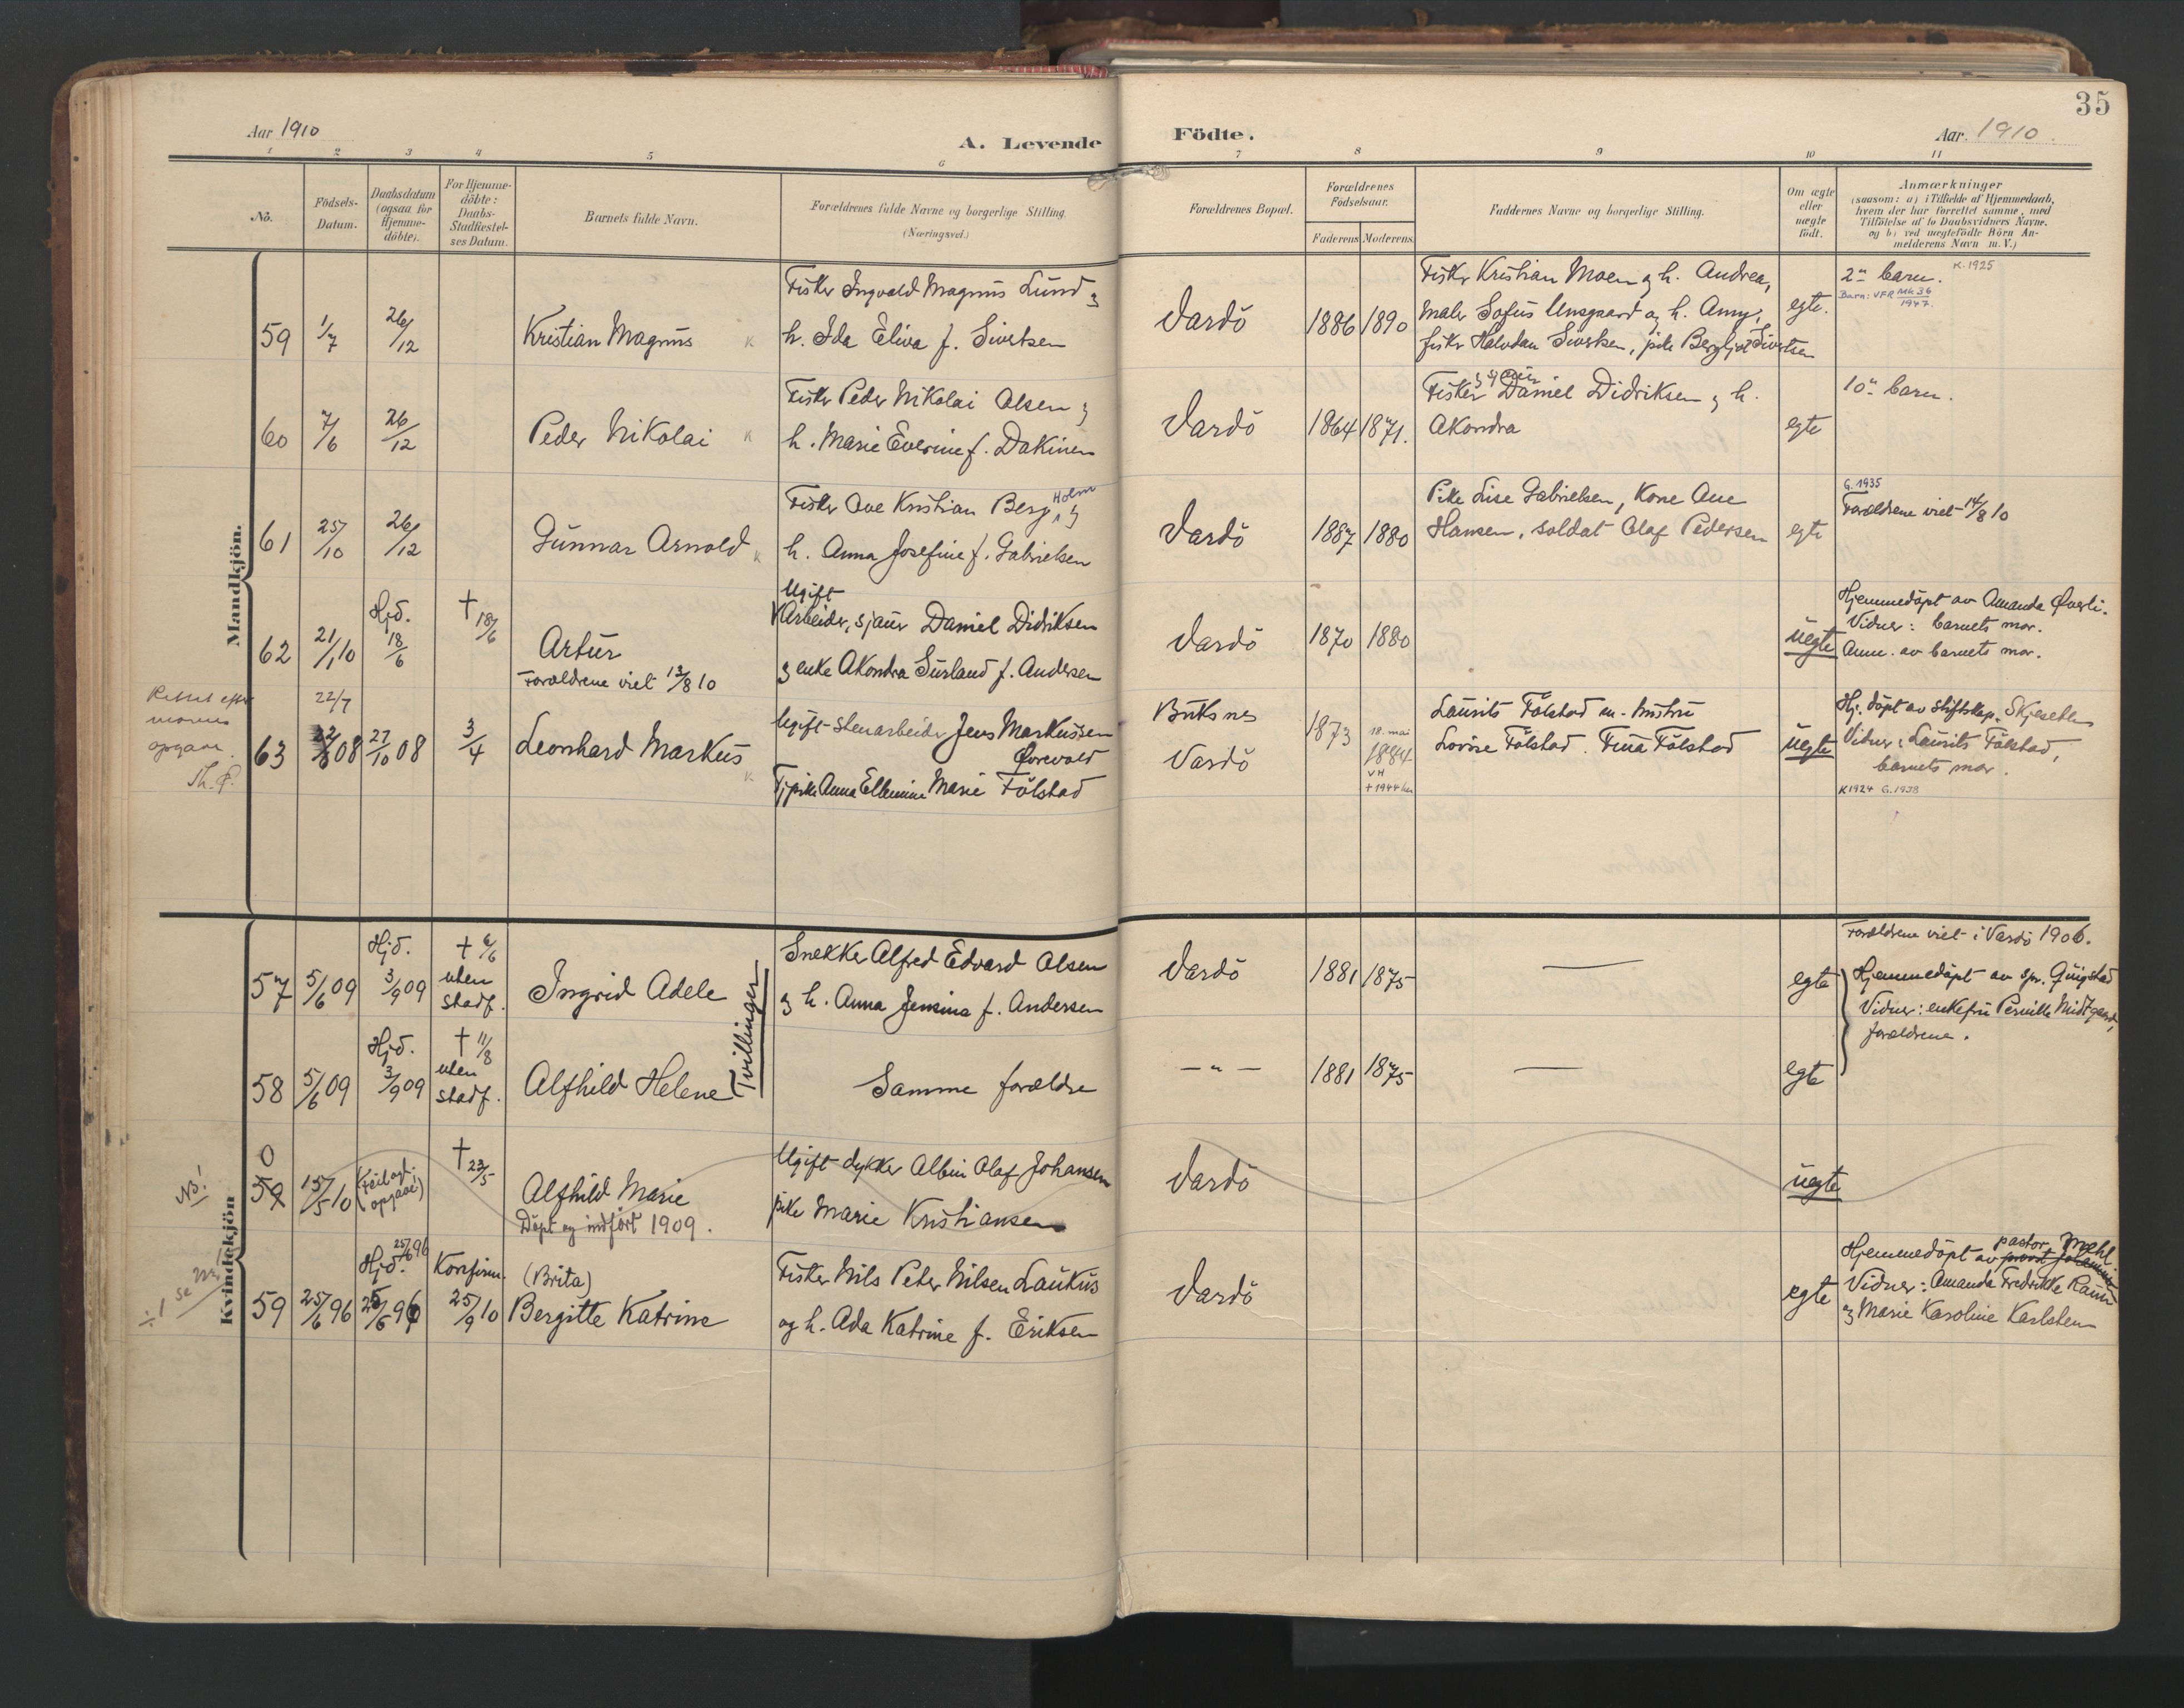 35
Aar 1910
A. Levende
Födte.
Aar. 1910.
1 2 3 4 5 6 7 8 9 10 11
No.
Födsels-
Datum.
Daabsdatum
(ogsaa for
Hjemme-
döbte).
For Hjemme-
döbte:
Daabs-
Stadfæstel-
ses Datum.
Barnets fulde Navn.
Forældrenes fulde Navne og borgerlige Stilling.
(Næringsvei.)
Forældrenes Bopæl.
Forældrenes
Födselsaar.
Faderens
Moderens.
Faddernes Navne og borgerlige Stilling.
Om ægte
eller
uægte
født.
Anmærkninger
(saasom: a) i Tilfælde af Hjemmedaab,
hvem der har forrettet samme, med
Tilföielse af to Daabsvidners Navne,
og b) ved uægtefödte Börn An-
melderens Navn m. V.)
Mandkjön.
59
1/7
26/12
Kristian Magnus K
Fisker Ingvald Magnus Lund og
h. Ida Eliva f. Sivertsen
Vardö
1886
1890
Fisker Kristian Moen og h. Andrea,
maler Sofus Unsgaard og h. Anny,
fisker Halvdan Sivertsen, pike Bergljot Sivertsen
egte.
2det barn. K. 1925
Barn: VFR Mk 36
1947.
60
7/6
26/12
Peder Nikolai K
Fisker Peder Nikolai Olsen og
h. Marie Everine f. Dakinen
Vardö
1864
1871.
Fisker og sjauer Daniel Didriksen og h.
Akondra
egte
10de barn.
61
25/10
26/12
Gunnar Arnold K
Fisker Ove Kristian Berg Holm og
h. Anna Josefine f. Gabrielsen
Vardö
1887
1880
Pike Lise Gabrielsen, Kone Ane
Hansen, soldat Olaf Pedersen
egte
G. 1935
Forældrene viet 14/8 10
62
21/1 10
Hjd.
18/6
† 18/6
Artur
Forældrene viet 13/8 10
Ugift
Arbeider, sjauer Daniel Didriksen
og enke Akondra Surland f. Andersen
Vardö
1870
1880
uegte
Hjemmedöpt av Amanda Øverli.
Vidner: barnets mor.
Anm. av barnets mor.
Rettet efter
morens
opgave.
Th. P.
63
22/7
08
27/10 08
3/4
Leonhard Markus K
Ugift stenarbeider Jens Markussen
Örevold
Tj.pike Anna Ellenine Marie Fölstad
Buksnes
Vardö
1873
18. mai
1884
VH
† 1944 her
Laurits Fölstad m. hustru
Lovise Fölstad. Tina Fölstad
uegte
Hj. döpt av stiftskap. Skjeseth
Vidner: Laurits Fölstad,
barnets mor.
K 1924 G. 1938
Kvindekjön
57
5/6 09
Hjd.
3/9 09
† 6/6
uten
stadf.
Ingrid Adele
Tvillinger
Snekker Alfred Edvard Olsen
og h. Anna Jensine f. Andersen
Vardö
1881
1875
—
egte
Forældrene viet i Vardö 1906.
Hjemmedöpt av spr. Qvigstad
Vidner: enkefru Pernille Midtgaard,
forældrene.
58
5/6 09
Hjd.
3/9 09
† 11/8
uten
stadf.
Alfhild Helene
Samme forældre
— " —
1881
1875
—
egte
NB!
0
59
15/5 10
(Feilagt.
opgave!)
† 23/5
Alfhild Marie
Döpt og indfört 1909.
Ugift dykker Albin Olaf Johansen
pike Marie Kristiansen
Vardö
uegte
÷1 se
59
25/6 96
Hjd. 25/6 96
25/6 96
Konfirm.
25/9 10
(Brita)
Bergitte Katrine
Fisker Nils Peter Nilsen Laukus
og h. Ada Katrine f. Eriksen
Vardö
egte
Hjemmedöpt av provst Johannsen pastor Mæhl.
Vidner: Amanda Fredrikke Raun
og Marie Karoline Karlsten